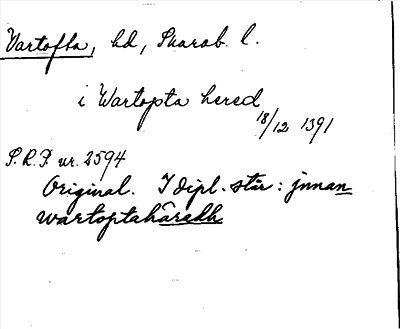 Vartofta, hd, Skarab. l.
i Wartopta hered
18/12 1391
S.R.P. nr. 2594
Original. I dipl. står: jnnan
wartoptahäradh